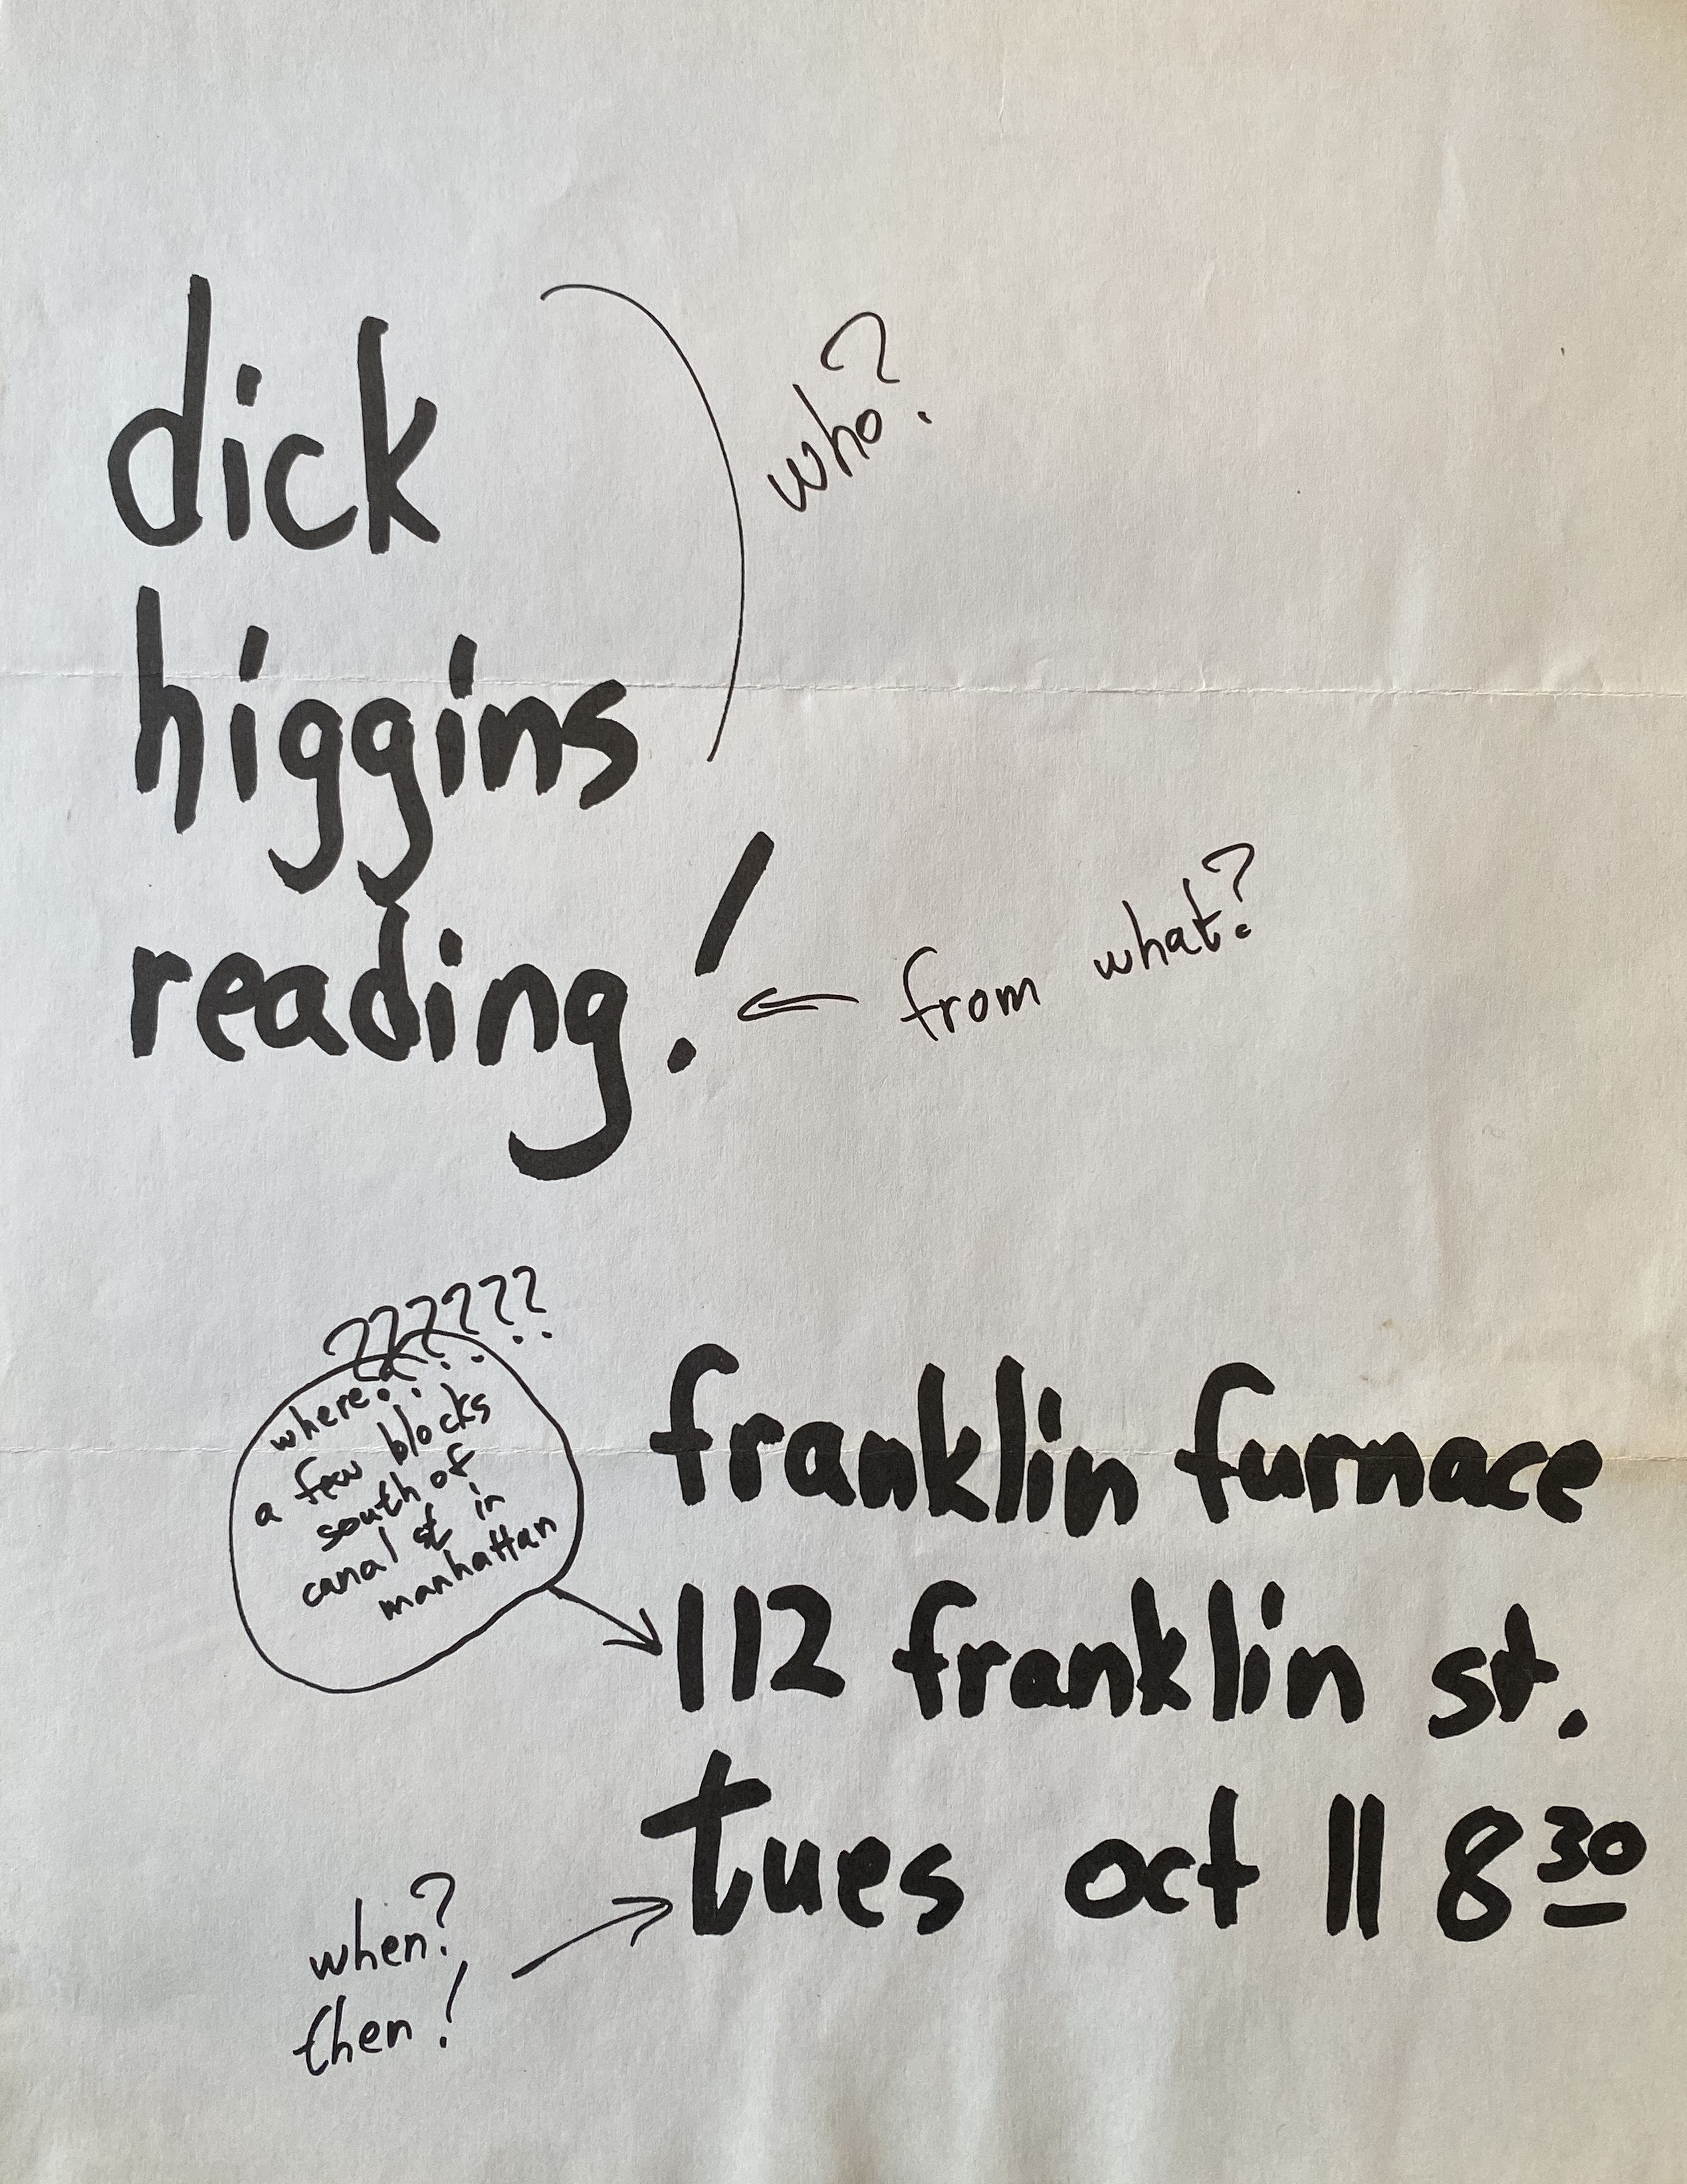 dick
who?
higgins
reading!
from what?
??????
where?
a few blocks
south of
canal st in
manhattan
franklin furnace
112 franklin st.
tues oct 11 8 30
when?
then!